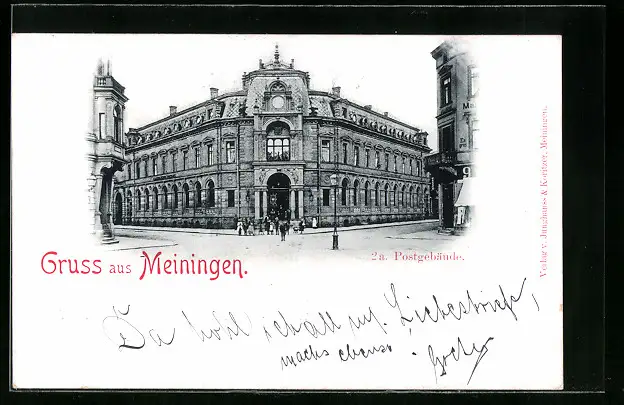 Gruss aus Meiningen.
2a. Postgebäude.
Verlag v. Junghanss & Koritzer, Meiningen.
Da hohl ich all m. Liebesbriefe,
machs ebenso.